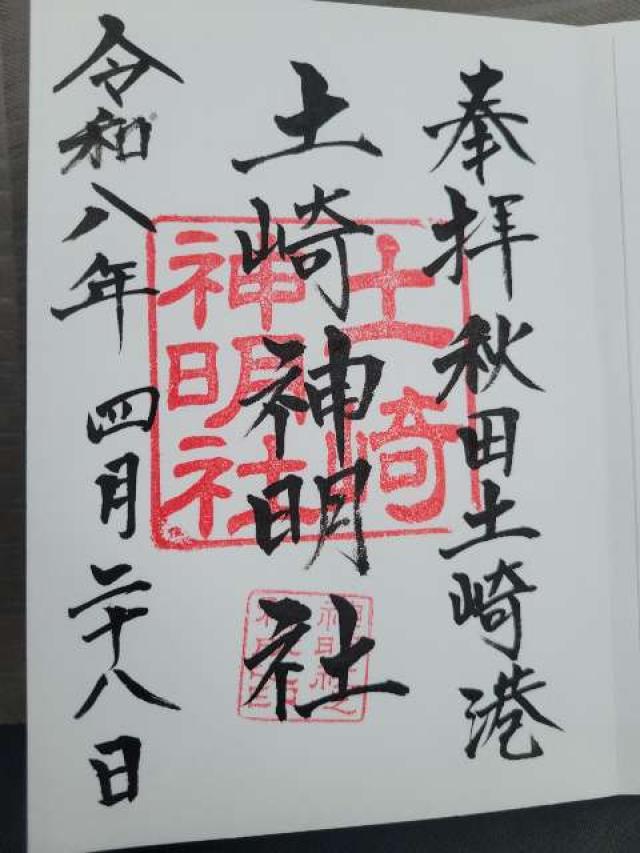 奉拝 秋田土崎港
土崎神明社
令和八年 四月二十八日
土崎
神明社